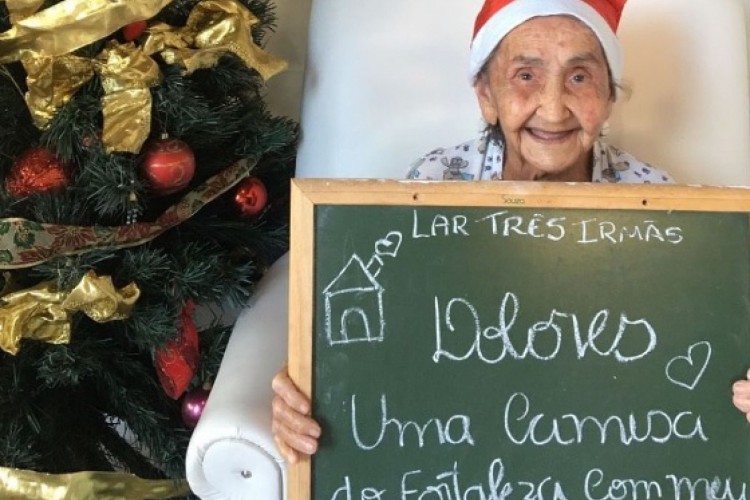 Souza
LAR TRÊS IRMÃS
Dolores
Uma Camisa
do Fortaleza com meu